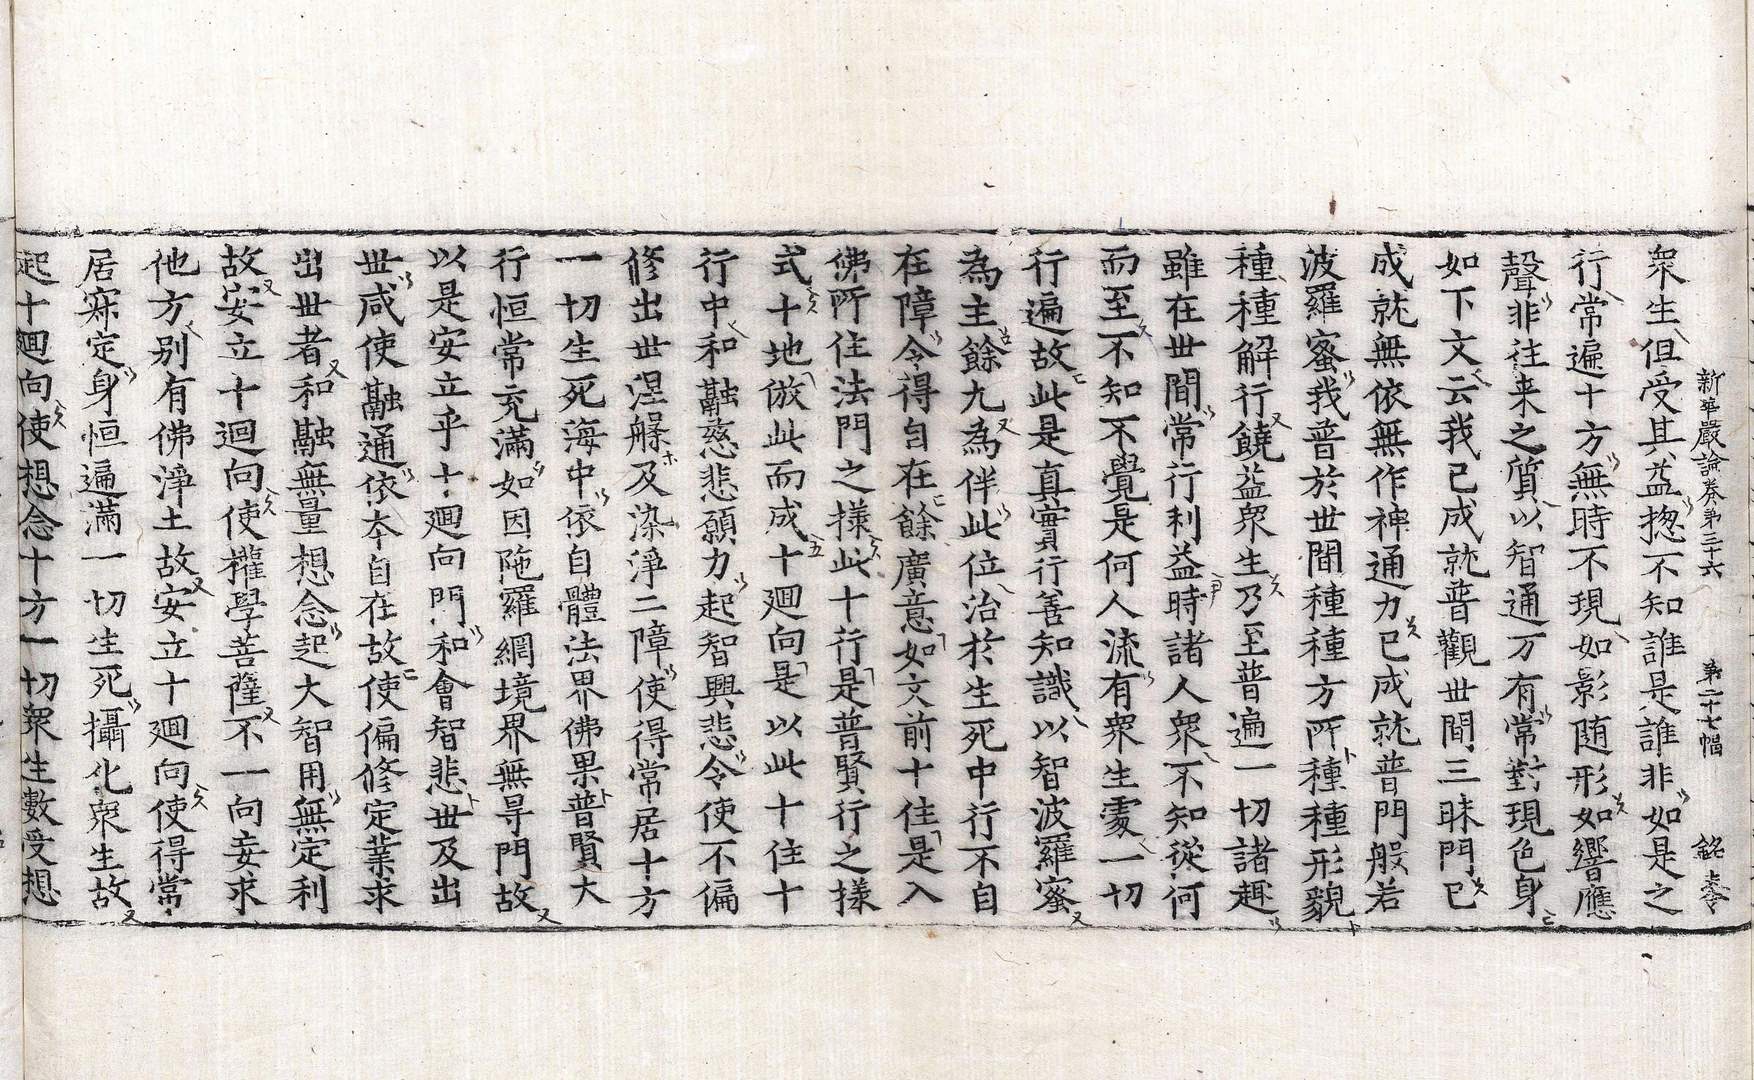 新華嚴論卷第三十六 第二十七幅 銘号
衆生但受其益揔不知誰是誰非如是之
行常遍十方無時不現如影随形如響應
聲非往来之質以智通万有常對現色身
如下文云我已成就普觀世間三昧門已
成就無依無作神通力已成就普門般若
波羅蜜我普於世間種種方所種種形貌
種種解行饒益衆生乃至普遍一切諸趣
雖在世間常行利益時諸人衆不知從何
而至不知不覺是何人流有衆生處一切
行遍故此是真實行善知識以智波羅蜜
為主餘九為伴此位治於生死中行不自
在障令得自在餘廣意如文前十住是入
佛所住法門之㨾此十行是普賢行之㨾
式十地倣此而成十廻向是以此十住十
行中和融慈悲願力起智興悲令使不偏
修出世涅槃及染淨二障使得常居十方
一切生死海中依自體法界佛果普賢大
行恒常充滿如因陁羅網境界無㝵門故
以是安立乎十廻向門和會智悲世及出
世咸使融通依本自在故使偏修定業求
出世者和融無量想念起大智用無定利
故安立十迴向使權學菩薩不一向妄求
他方別有佛淨土故安立十廻向使得常
居寂定身恒遍滿一切生死攝化衆生故
起十廻向使想念十方一切衆生數受想